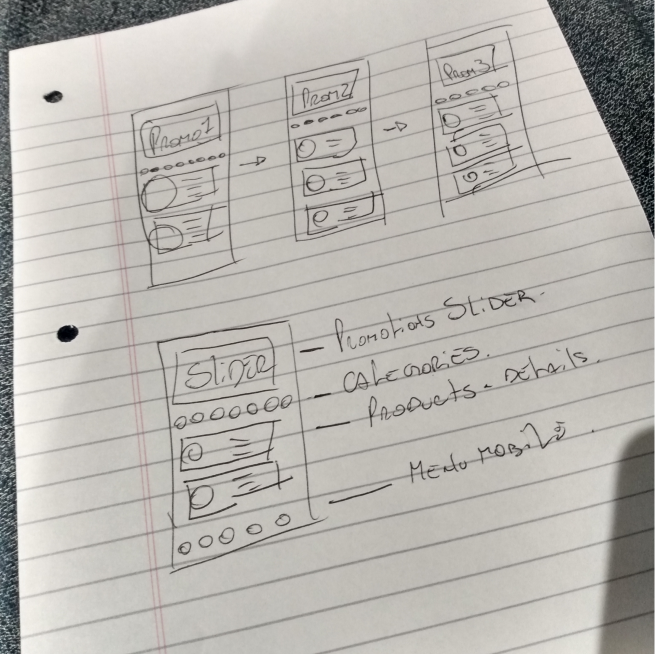 Promo1
Prom2
Prom3
SLiDER
Promotions SLiDER.
CATEGORIES.
PRODUCTS - DETAILS.
MENU MOBILE.